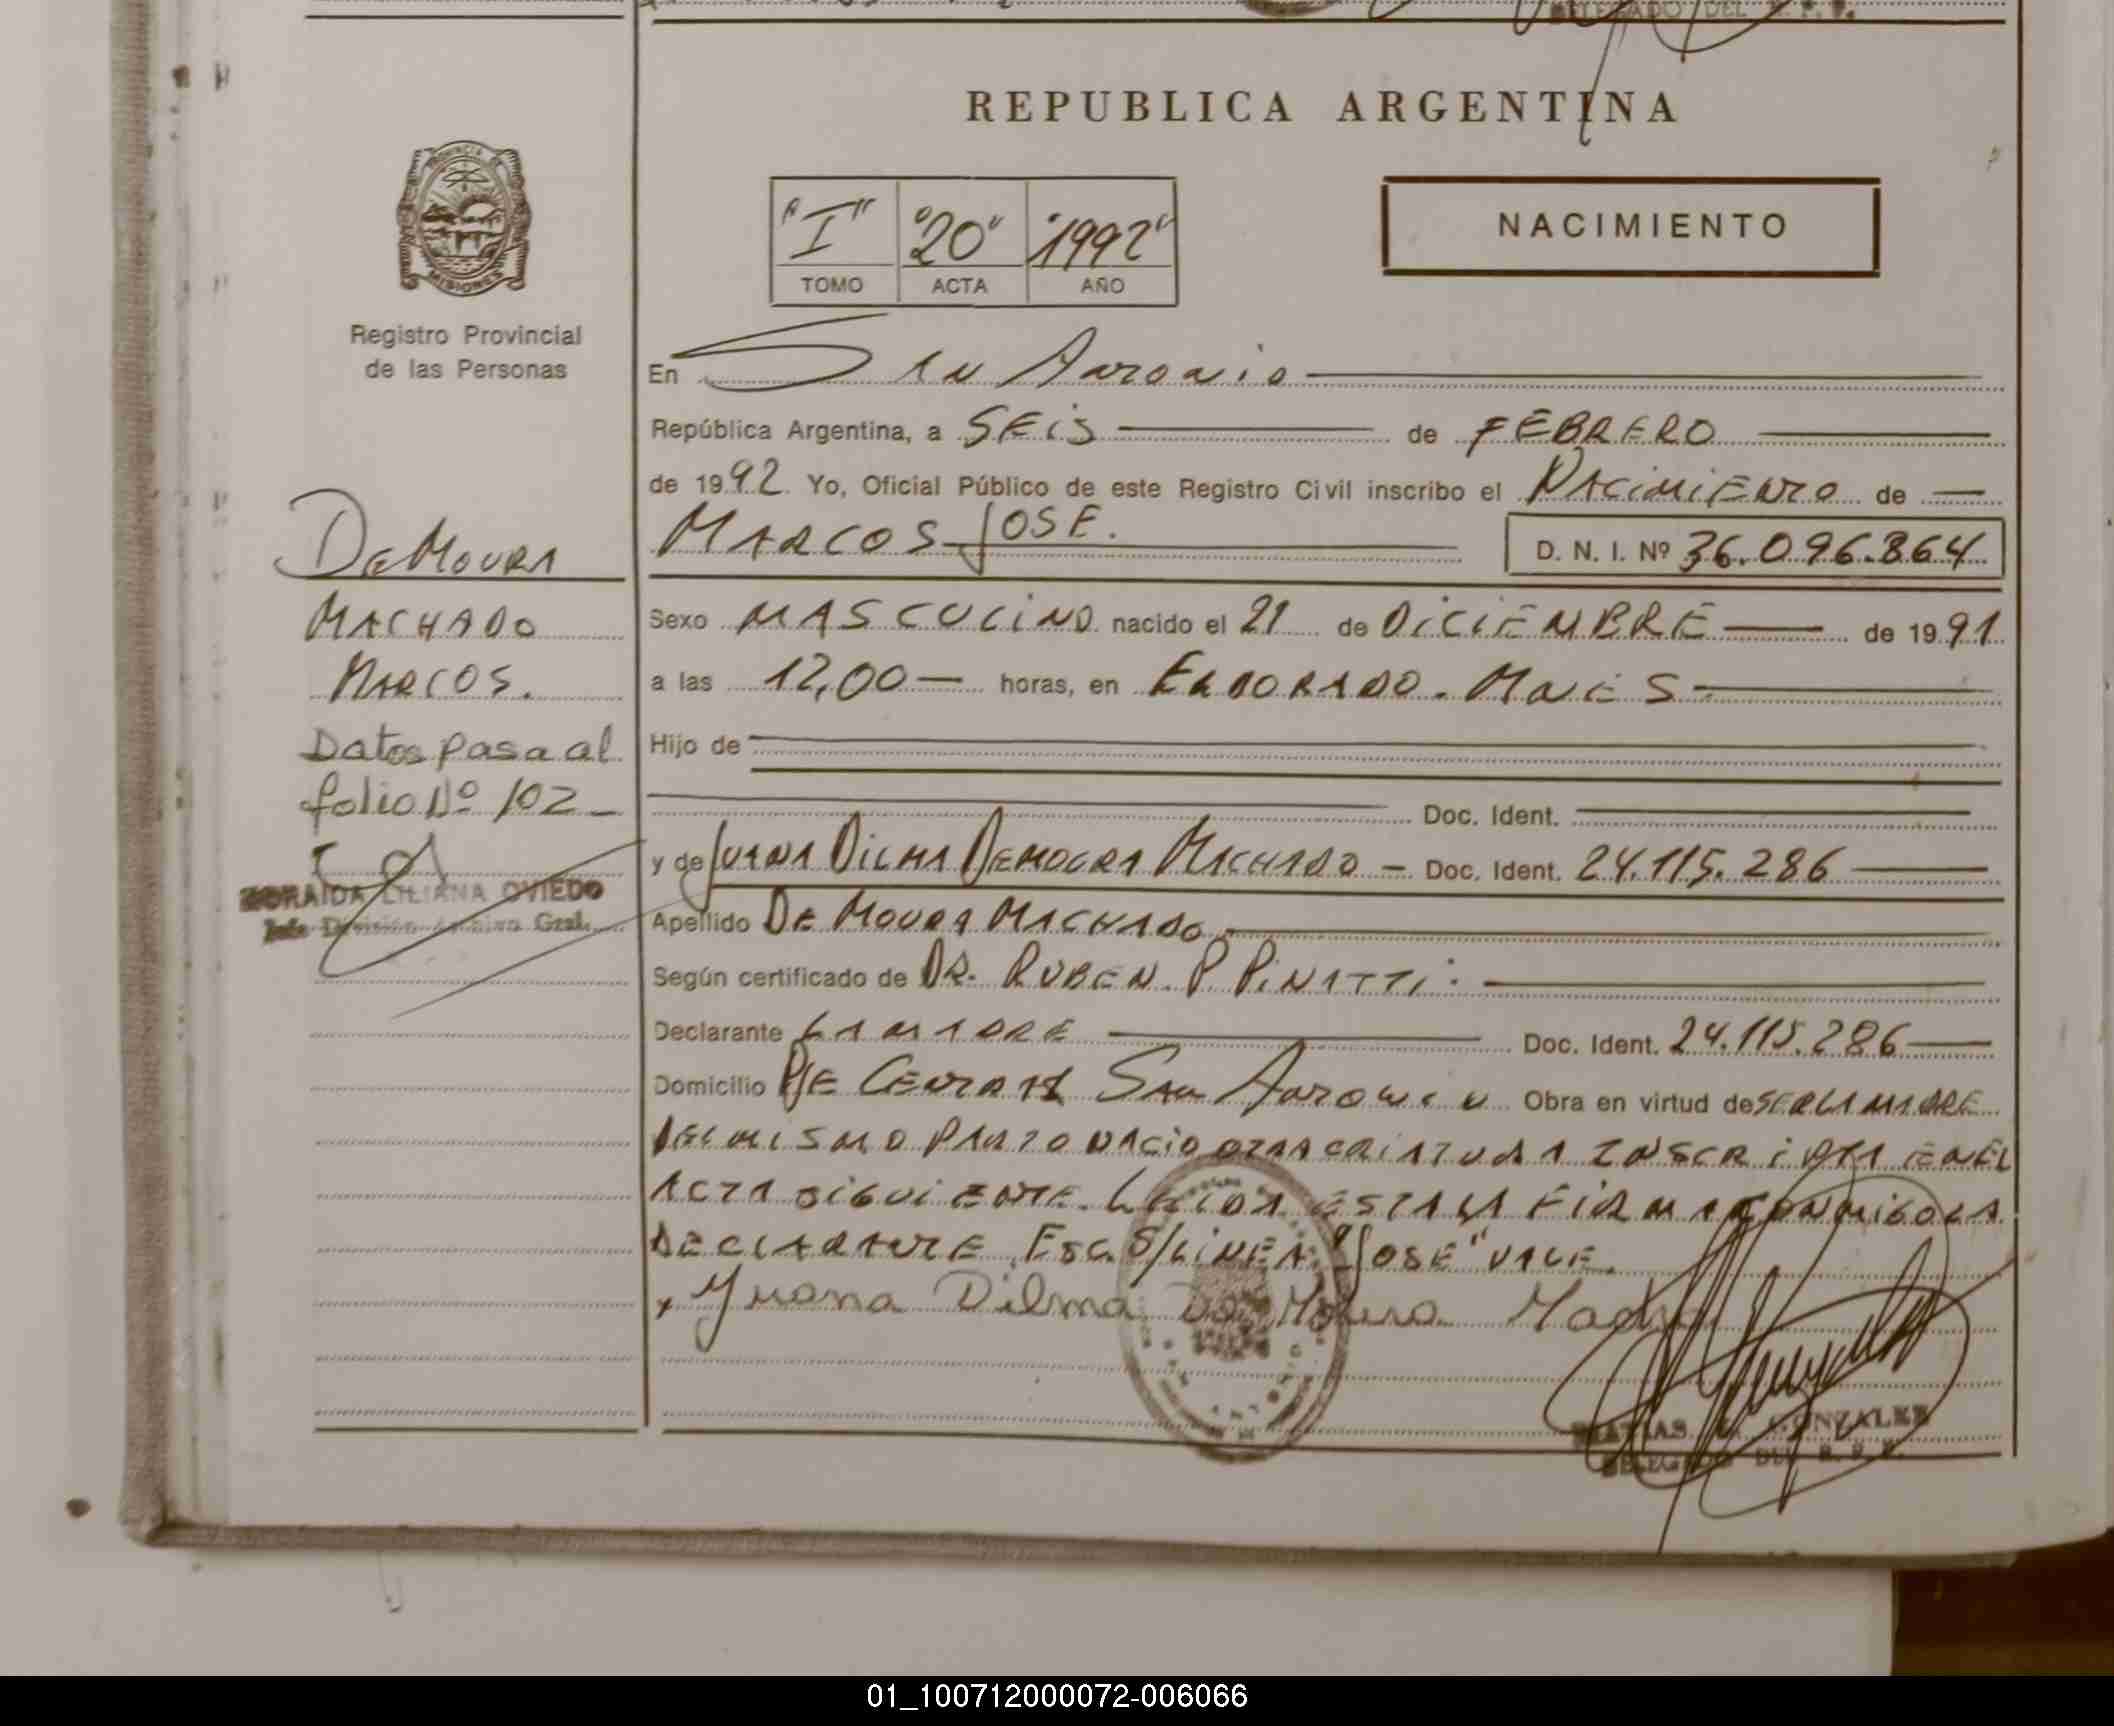 DELEGADO DEL R. P. P.
REPUBLICA ARGENTINA
PROVINCIA DE
MISIONES
Registro Provincial
de las Personas
"I" "20" "1992"
TOMO ACTA AÑO
NACIMIENTO
En San Antonio
República Argentina, a SEIS de FEBRERO
de 1992 Yo, Oficial Público de este Registro Civil inscribo el NACIMIENTO de
MARCOS JOSE. D. N. I. Nº 36.096.864
DE MOURA
MACHADO
MARCOS.
Datos pasa al
folio Nº 102
ZORAIDA LILIANA OVIEDO
Jefe División Archivo Gral.
Sexo MASCULINO nacido el 21 de DICIEMBRE de 1991
a las 12,00 horas, en ELDORADO. MNES
Hijo de
Doc. Ident.
y de JUANA DILMA DEMOURA MACHADO Doc. Ident. 24.115.286
Apellido DE MOURA MACHADO
Según certificado de DR. RUBEN P PINATTI
Declarante LA MADRE Doc. Ident. 24.115.286
Domicilio PJE CENTRAL SAN ANTONIO Obra en virtud de SER LA MADRE
DEL MISMO PARTO NACIO OTRA CRIATURA INSCRIPTA EN EL
ACTA SIGUIENTE. LEIDA ESTA LA FIRMA CONMIGO LA
DECLARANTE. Esc. S/LINEA. "JOSE" VALE.
x Juana Dilma De Moura Machado
MATIAS GONZALEZ
DELEGADO DEL R. P. P.
01_100712000072-006066